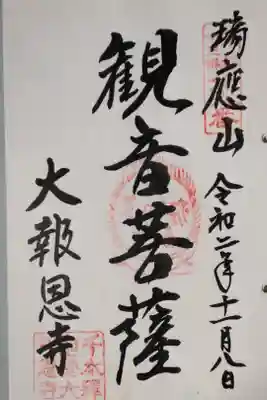 瑞應山
令和二年十一月八日
観音菩薩
大報恩寺